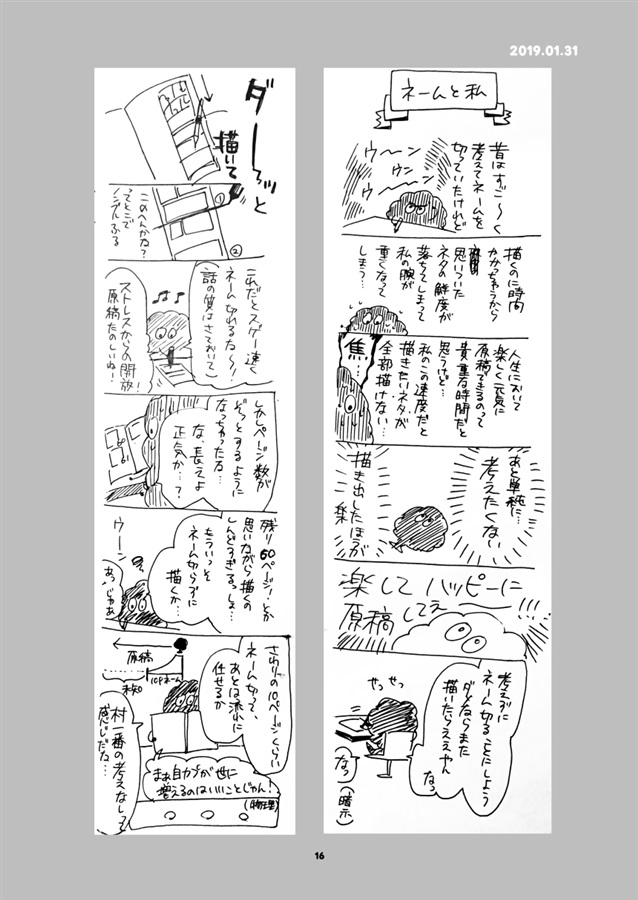 2019.01.31
ネームと私
昔はすご〜く
考えてネームを
切っていたけれど
ウ〜〜ン
ウン
ウ〜〜ン
描くのに時間
かかっちゃうから
思いついた
ネタの鮮度が
落ちちゃって
私の腕が
重くなって
しまう…
人生において
楽しく元気に
原稿できるのって
貴重な時間だと
思うけど…
私のこの速度だと
描きたいネタが
全部描けない…
焦…
あと単純に…
考えたくない
描き出したほうが
楽
楽してハッピーに
原稿してぇ〜!!!
考えずに
ネーム切ることにしよう
ダメならまた
描いたらええやん
なっ
せっせっ
なっ(暗示)
ダーーッと
描いて
①
②
このへんかな?
ってとこで
ノンブルふる
これだとスゲー速く
ネーム切れるな〜!
話の質はさておいて
ストレスからの開放!
原稿たのしいね!
しかしページ数が
ぞっとするように
なっちゃったな…
な、長えよ
正気か…?
残り60ページ!とか
思いながら描くの
しんどすぎるっしょ…
もういっそ
ネーム切らずに
描くか…
ウーン
あっじゃあ
さわりの10ページくらい
ネーム切って、
あとは流れに
任せるか
原稿
10Pネーム
未知
村一番の考えなしって
感じだな…
まぁ自カプが世に
増えるのはいいことじゃん!
16